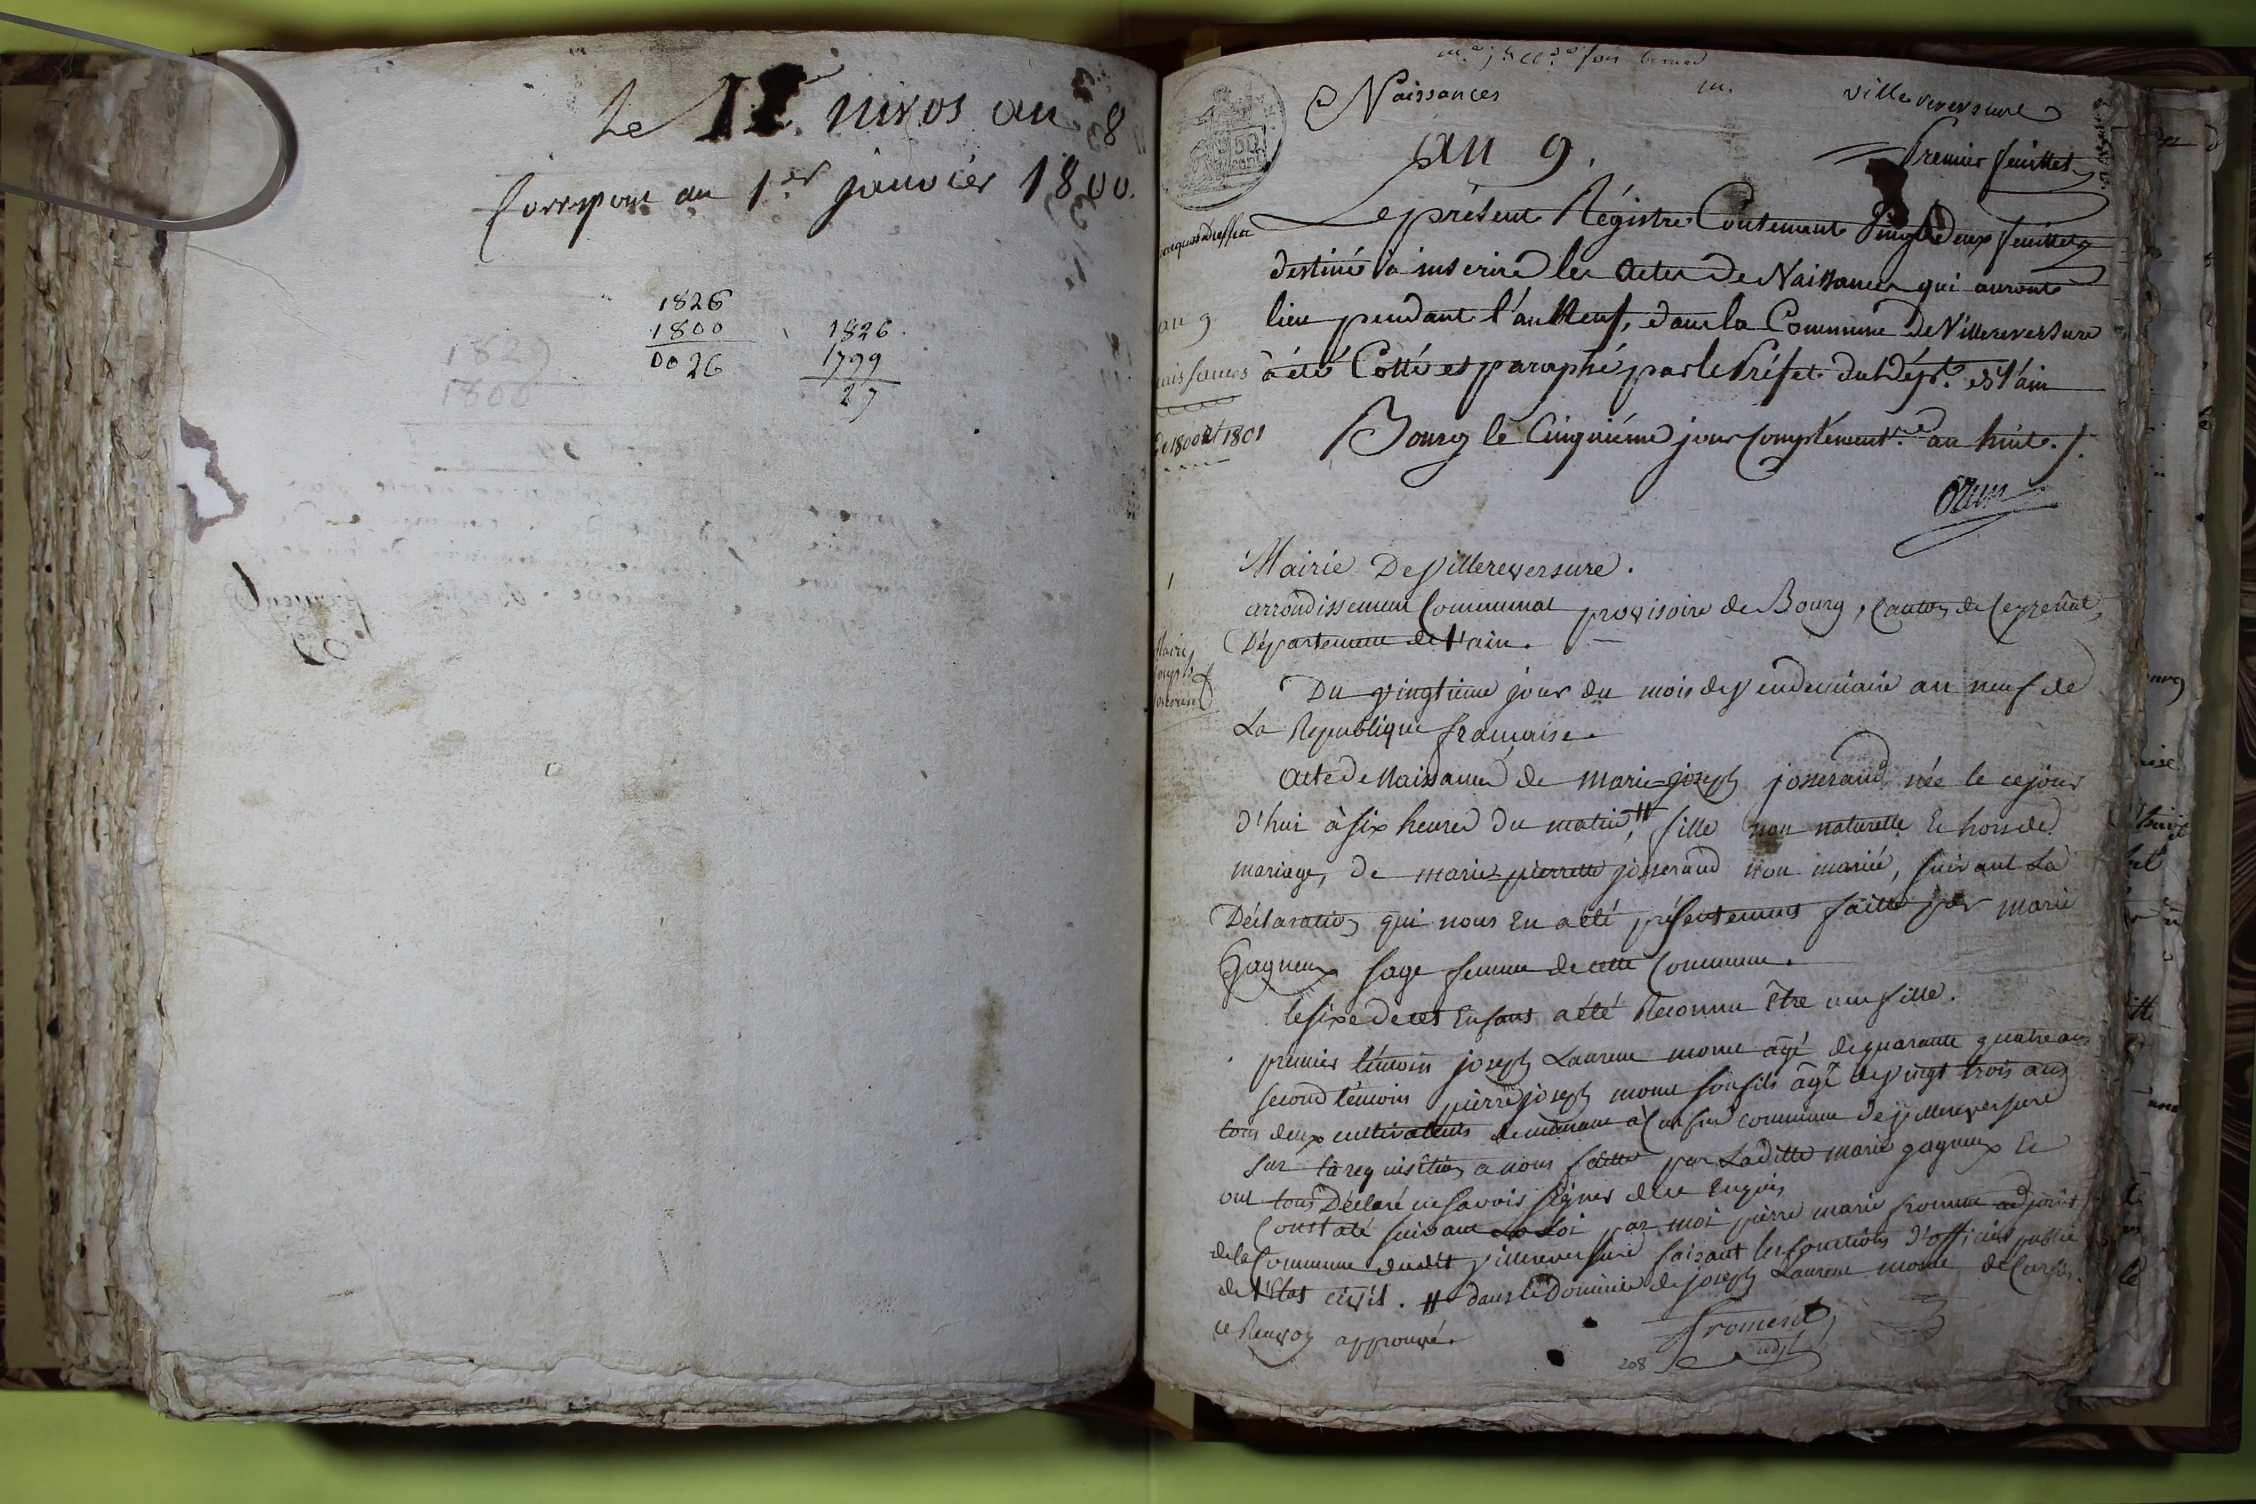 Le 11 nivos an 8
Correspont au 1.er janvier 1800.
1826
1800
0026
1826
1799
27
1829
1800
Naissances
villereversure
an 9.
Premier feuillet
Le présent Régistre Contenant Vingt Deux feuillets
destiné à inscrire les Actes de Naissances qui auront
lieu pendant l'an Neuf, dans la Commune de Villereversure
à été Cotté et paraphé par le Préfet du Dépt. de l'ain
Bourg le Cinquiéme jour Complément.re an huit.
Ozun
an 9
naissances
De 1800 et 1801
1
Mairie De Villereversure.
arrondissement Communal provisoire de Bourg, Canton de Ceyzeriat,
Département de l'ain.
Du vingtieme jour du mois de vendemiaire an neuf de
La Republique française.
Acte de Naissance de marie-joseph josserand née le cejour
d'hui à six heures du matin, # fille non naturelle Et hors de
mariage, de marie-pierrette josserand non marié, suivant La
Déclaration qui nous En a été présentement faitte par marie
Gagneux sage femme de cette Commune.
le sixe de cet Enfant a été Reconnu Être une fille.
premier témoin joseph Laurent monet âgé de quarante quatre ans
second témoin pierre joseph monet son fils âgé de vingt trois ans
tous deux cultivateurs demeurant à commune de villereversure
sur la requisition a nous faitte par Laditte marie gagneux Et
ont tous Déclaré ne savoir signer de ce Enquis
Constaté suivant La Loi par moi pierre marie froment adjoint
de la Commune dudit villereversure faisant les fonctions d'officier public
de l'État civil. # dans le Domicile de joseph Laurent monet de
ce Renvoy approuvé.
froment
adj
208